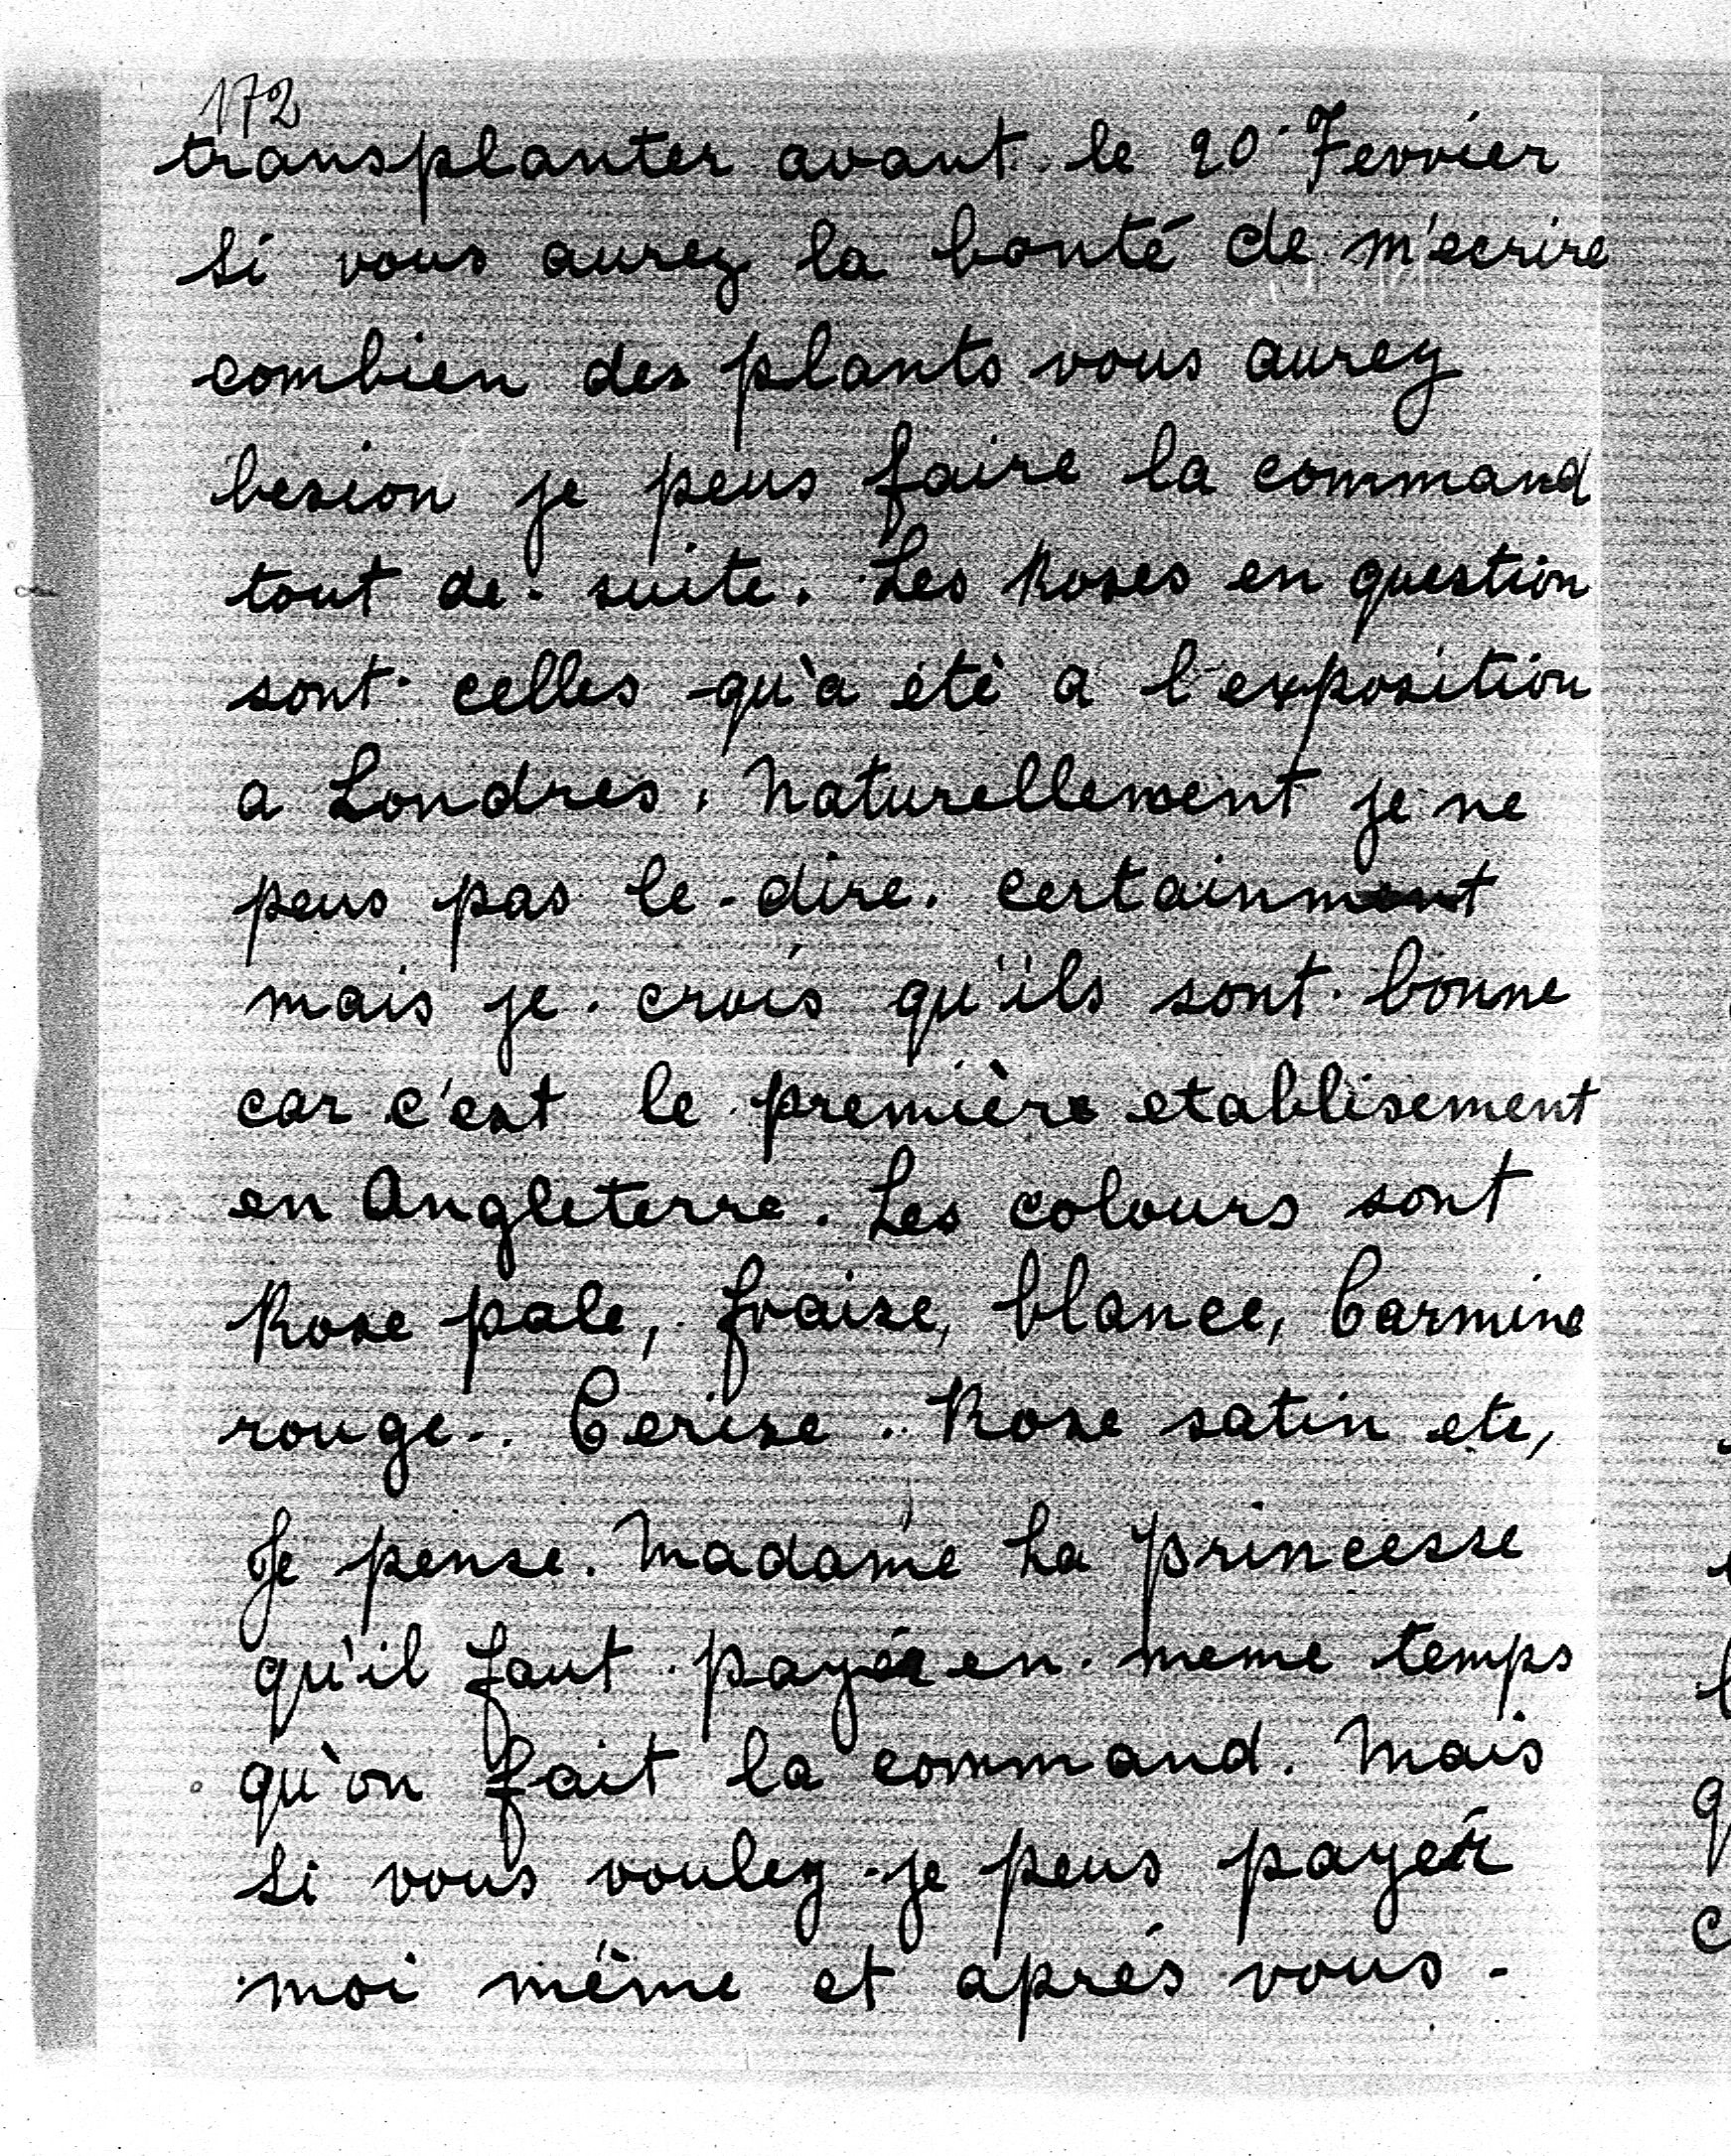 172
transplanter avant le 20 Fevrier
si vous aurez la bonté de m'ecrire
combien des plants vous aurez
besion je peus faire la command
tout de suite. Les Roses en question
sont celles qu'a étè a l'exposition
a Londres. Naturellement je ne
peus pas le dire. certainment
mais je crois qu'ils sont bonne
car c'est le première etablisement
en Angleterre. Les colours sont
Rose pale, fraise, blance, Carmine
rouge. Cerise. Rose satin etc,
Je pense. Madame La Princesse
qu'il faut payér en meme temps
qu'on fait la command. Mais
si vous voulez je peus payér
moi même et aprés vous.